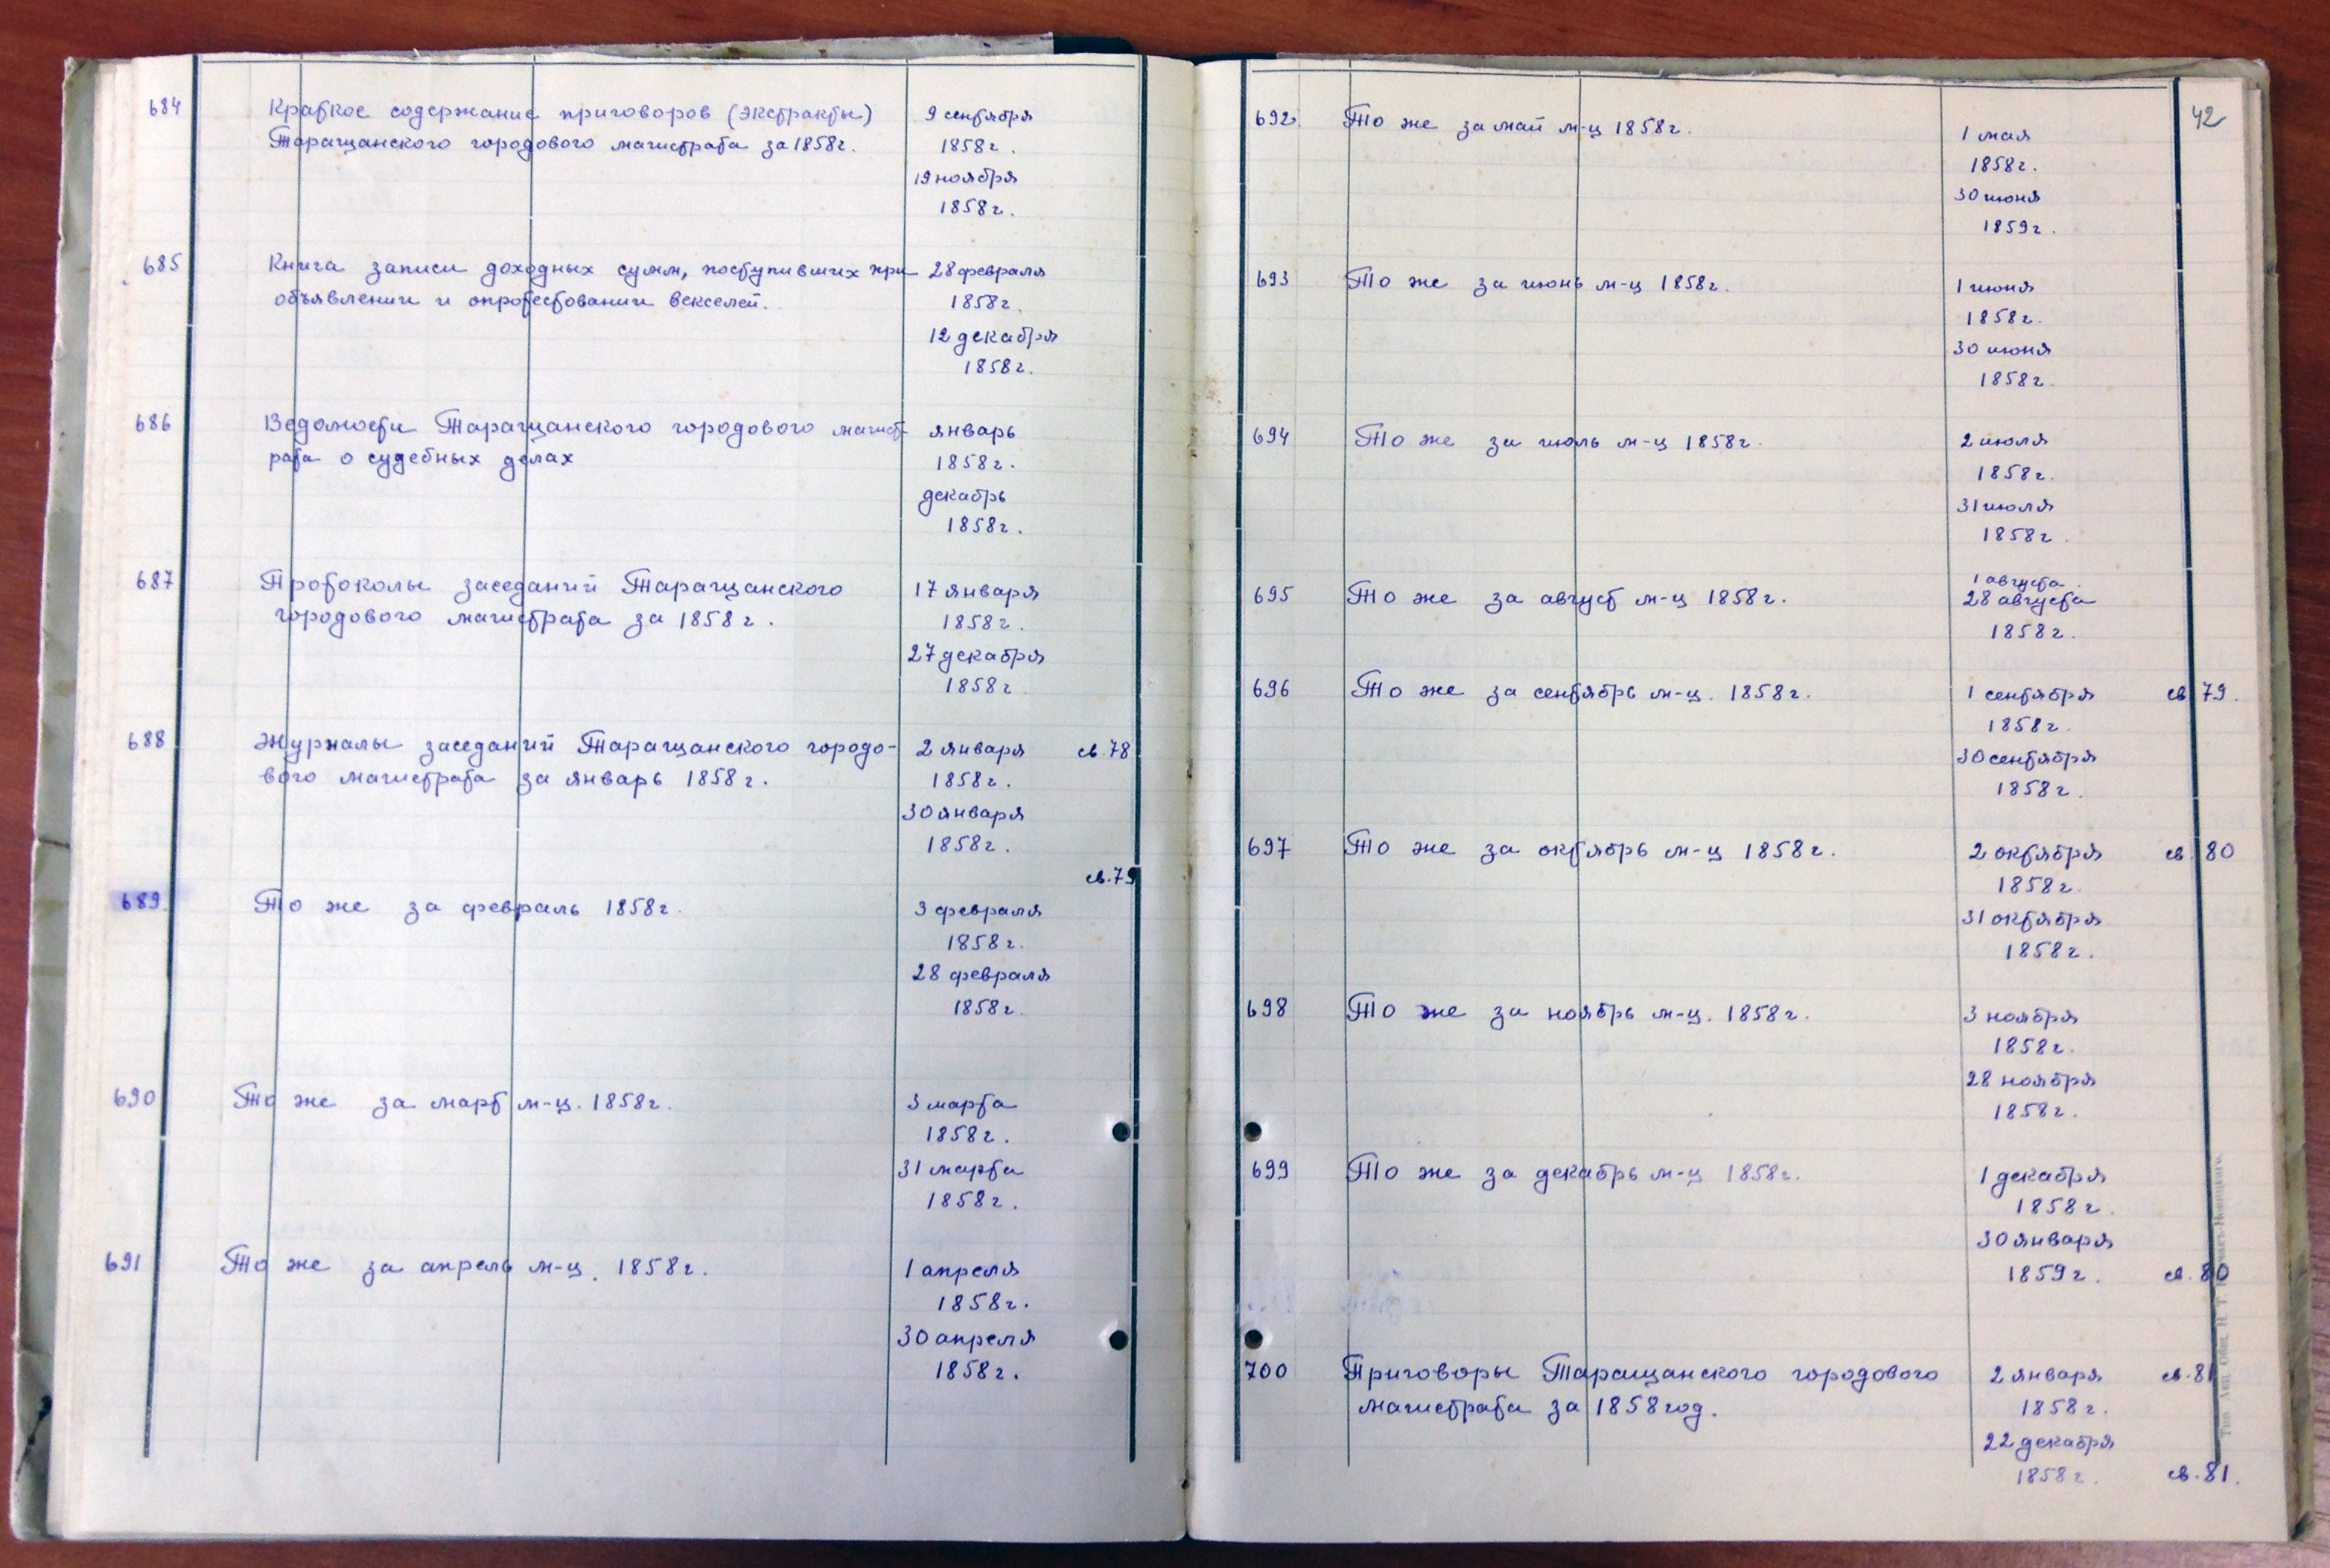 684 Краткое содержание приговоров (экстракты) 9 сентября
Таращанского городового магистрата за 1858г. 1858г.
19 ноября
1858г.
685 Книга записи доходных сумм, поступивших при 28 февраля
объявлении и опротестовании векселей. 1858г.
12 декабря
1858г.
686 Ведомости Таращанского городового магист- январь
рата о судебных делах 1858г.
декабрь
1858г.
687 Протоколы заседаний Таращанского 17 января
городового магистрата за 1858г. 1858г.
27 декабря
1858г.
688 Журналы заседаний Таращанского городо- 2 января св.78
вого магистрата за январь 1858г. 1858г.
30 января
1858г.
св.79
689 То же за февраль 1858г. 3 февраля
1858г.
28 февраля
1858г.
690 То же за март м-ц. 1858г. 3 марта
1858г.
31 марта
1858г.
691 То же за апрель м-ц. 1858г. 1 апреля
1858г.
30 апреля
1858г.
42
692 То же за май м-ц 1858г. 1 мая
1858г.
30 июня
1859г.
693 То же за июнь м-ц 1858г. 1 июня
1858г.
30 июня
1858г.
694 То же за июль м-ц 1858г. 2 июля
1858г.
31 июля
1858г.
1 августа
695 То же за август м-ц 1858г. 28 августа
1858г.
696 То же за сентябрь м-ц. 1858г. 1 сентября св 79.
1858г.
30 сентября
1858г.
697 То же за октябрь м-ц 1858г. 2 октября св. 80
1858г.
31 октября
1858г.
698 То же за ноябрь м-ц. 1858г. 3 ноября
1858г.
28 ноября
1858г.
699 То же за декабрь м-ц 1858г. 1 декабря
1858г.
30 января
1859г. св. 80
700 Приговоры Таращанского городового 2 января св.81
магистрата за 1858 год. 1858г.
22 декабря
1858г. св.81.